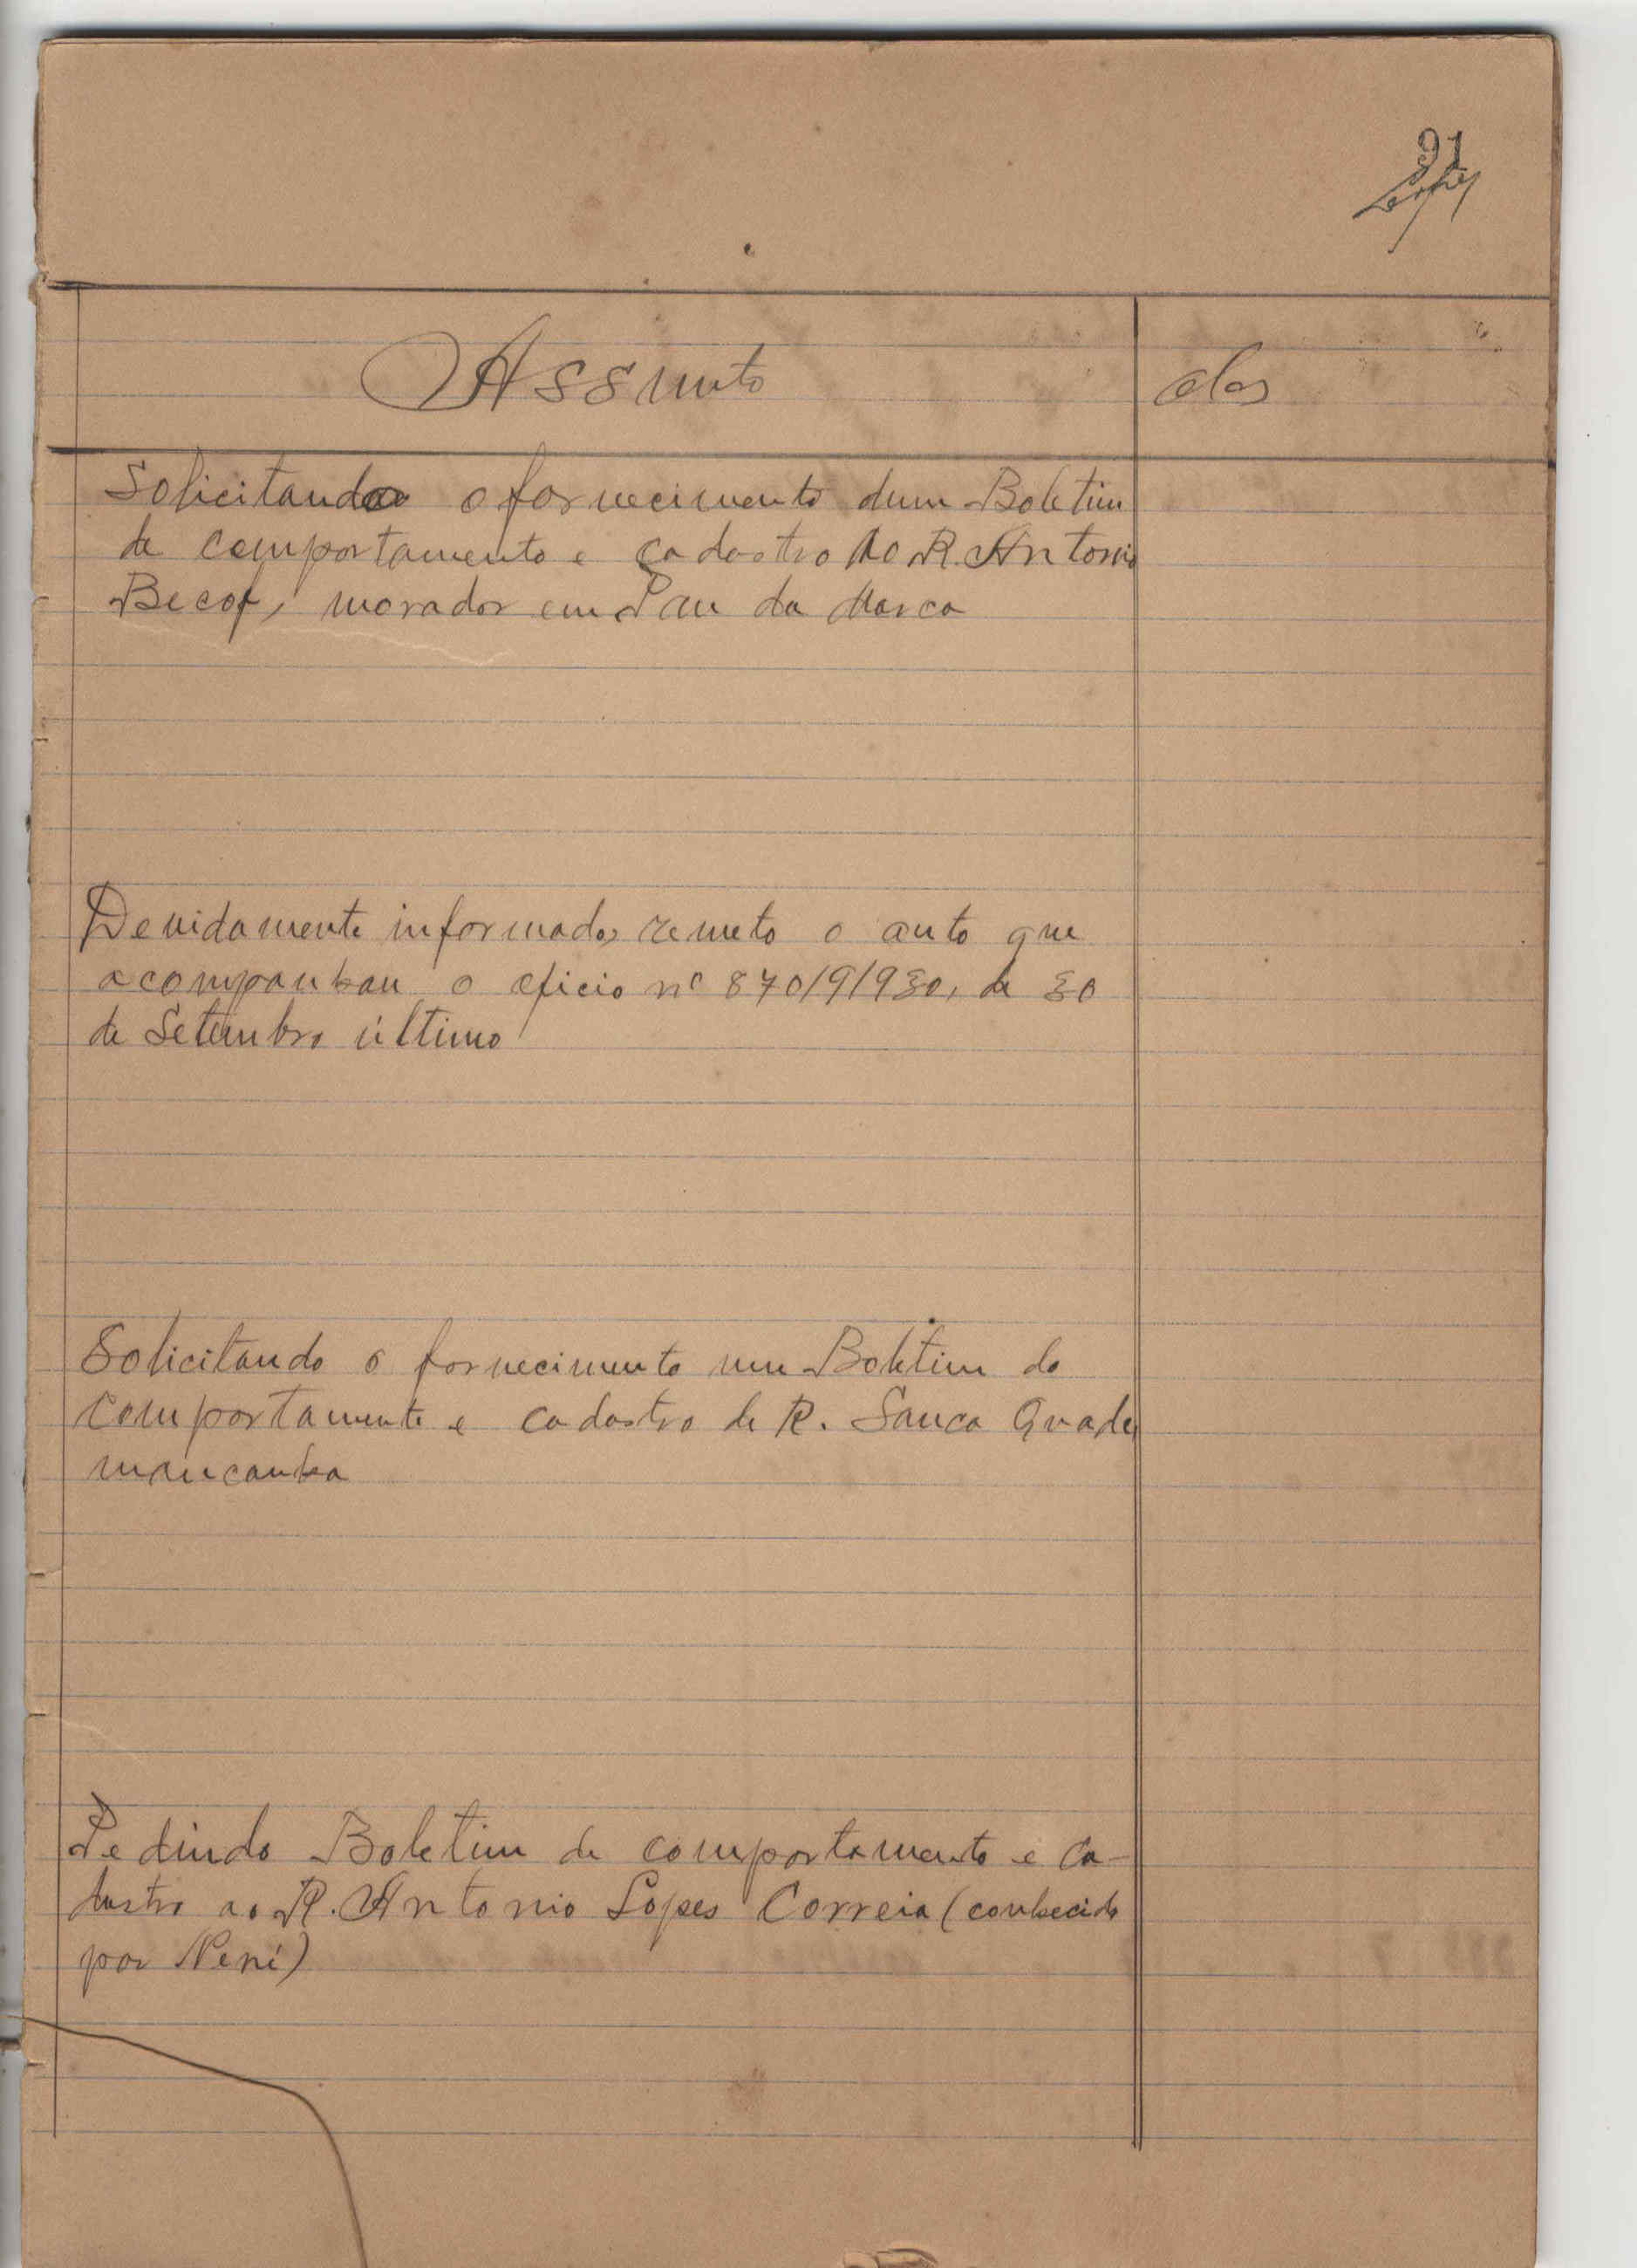 91
Assunto
Solicitando o fornecimento dum Boletim
de comportamento e cadastro ao R. Antonio
Becof, morador em Pau da Marca
Devidamente informado, remeto o auto que
acompanhou o oficio nº 870/9/930, de 30
de Setembro último
Solicitando o fornecimento um Boletim do
comportamento e cadastro de R. Sanca Quade
mancanha
Pedindo Boletim de comportamento e ca-
dastro ao R. Antonio Lopes Correia (conhecido
por Není)